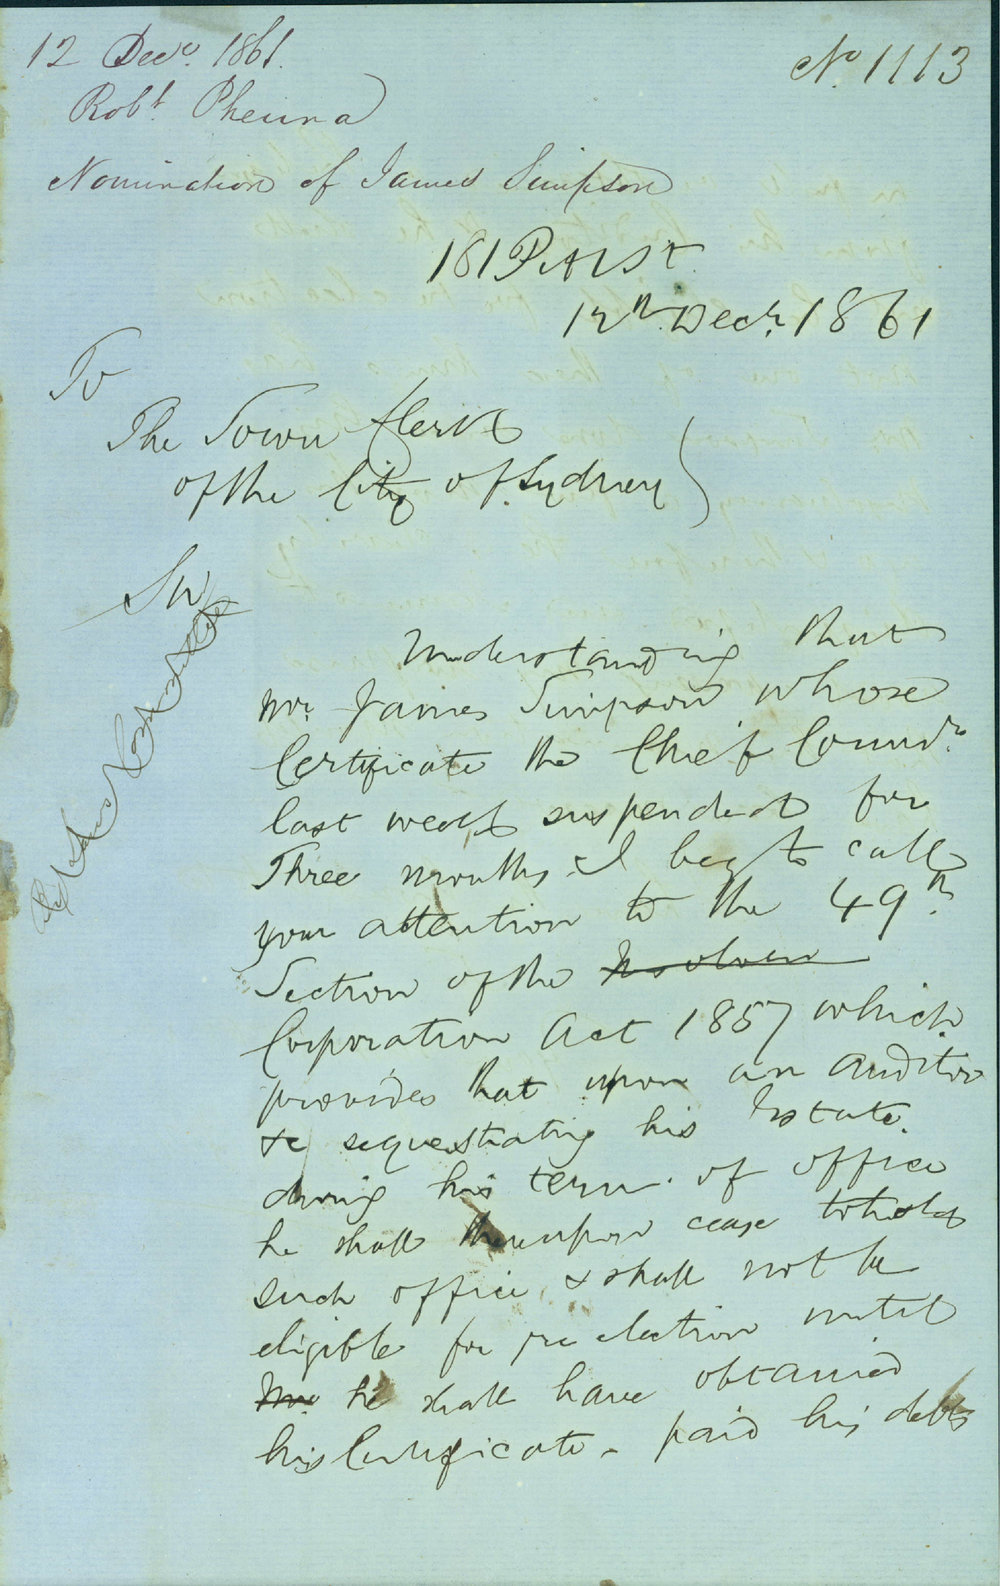 12 Decr. 1861.
No. 1113
Robt. Pheina
Nomination of James Simpson
181 Pitt St.
12th Decr. 1861
To
The Town Clerk
of the City of Sydney
Sir
Understanding that
Mr. James Simpson whose
Certificate the Chief Commr.
last week suspended for
Three months I beg to call
your attention to the 49th.
Section of the Insolven
Corporation Act 1857 which
provides that upon an Auditor
&c sequestrating his Estate.
during his term of office
he shall thereupon cease to hold
such office & shall not be
eligible for re election until
Mr. he shall have obtained
his Certificate - paid his debts